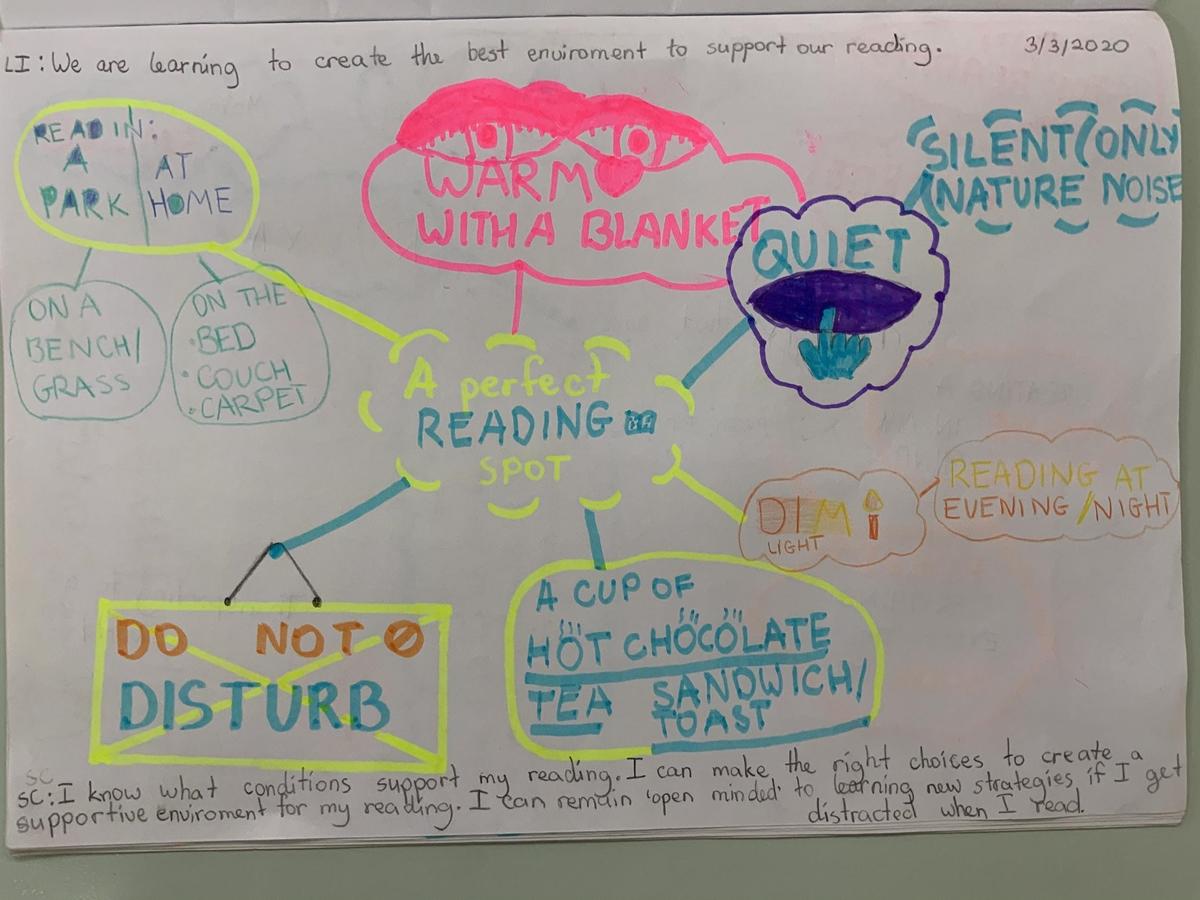 LI: We are learning to create the best enviroment to support our reading. 3/3/2020
READ IN:
A
PARK
AT
HOME
ON A
BENCH/
GRASS
ON THE
•BED
•COUCH
•CARPET
WARM
WITH A BLANKET
QUIET
SILENT/ONLY
NATURE NOISE
A perfect
READING
SPOT
DIM
LIGHT
READING AT
EVENING/NIGHT
DO NOT
DISTURB
A CUP OF
HOT CHOCOLATE
TEA SANDWICH/
TOAST
SC
SC: I know what conditions support my reading. I can make the right choices to create a
supportive enviroment for my reading. I can remain 'open minded' to learning new strategies if I get
distracted when I read.